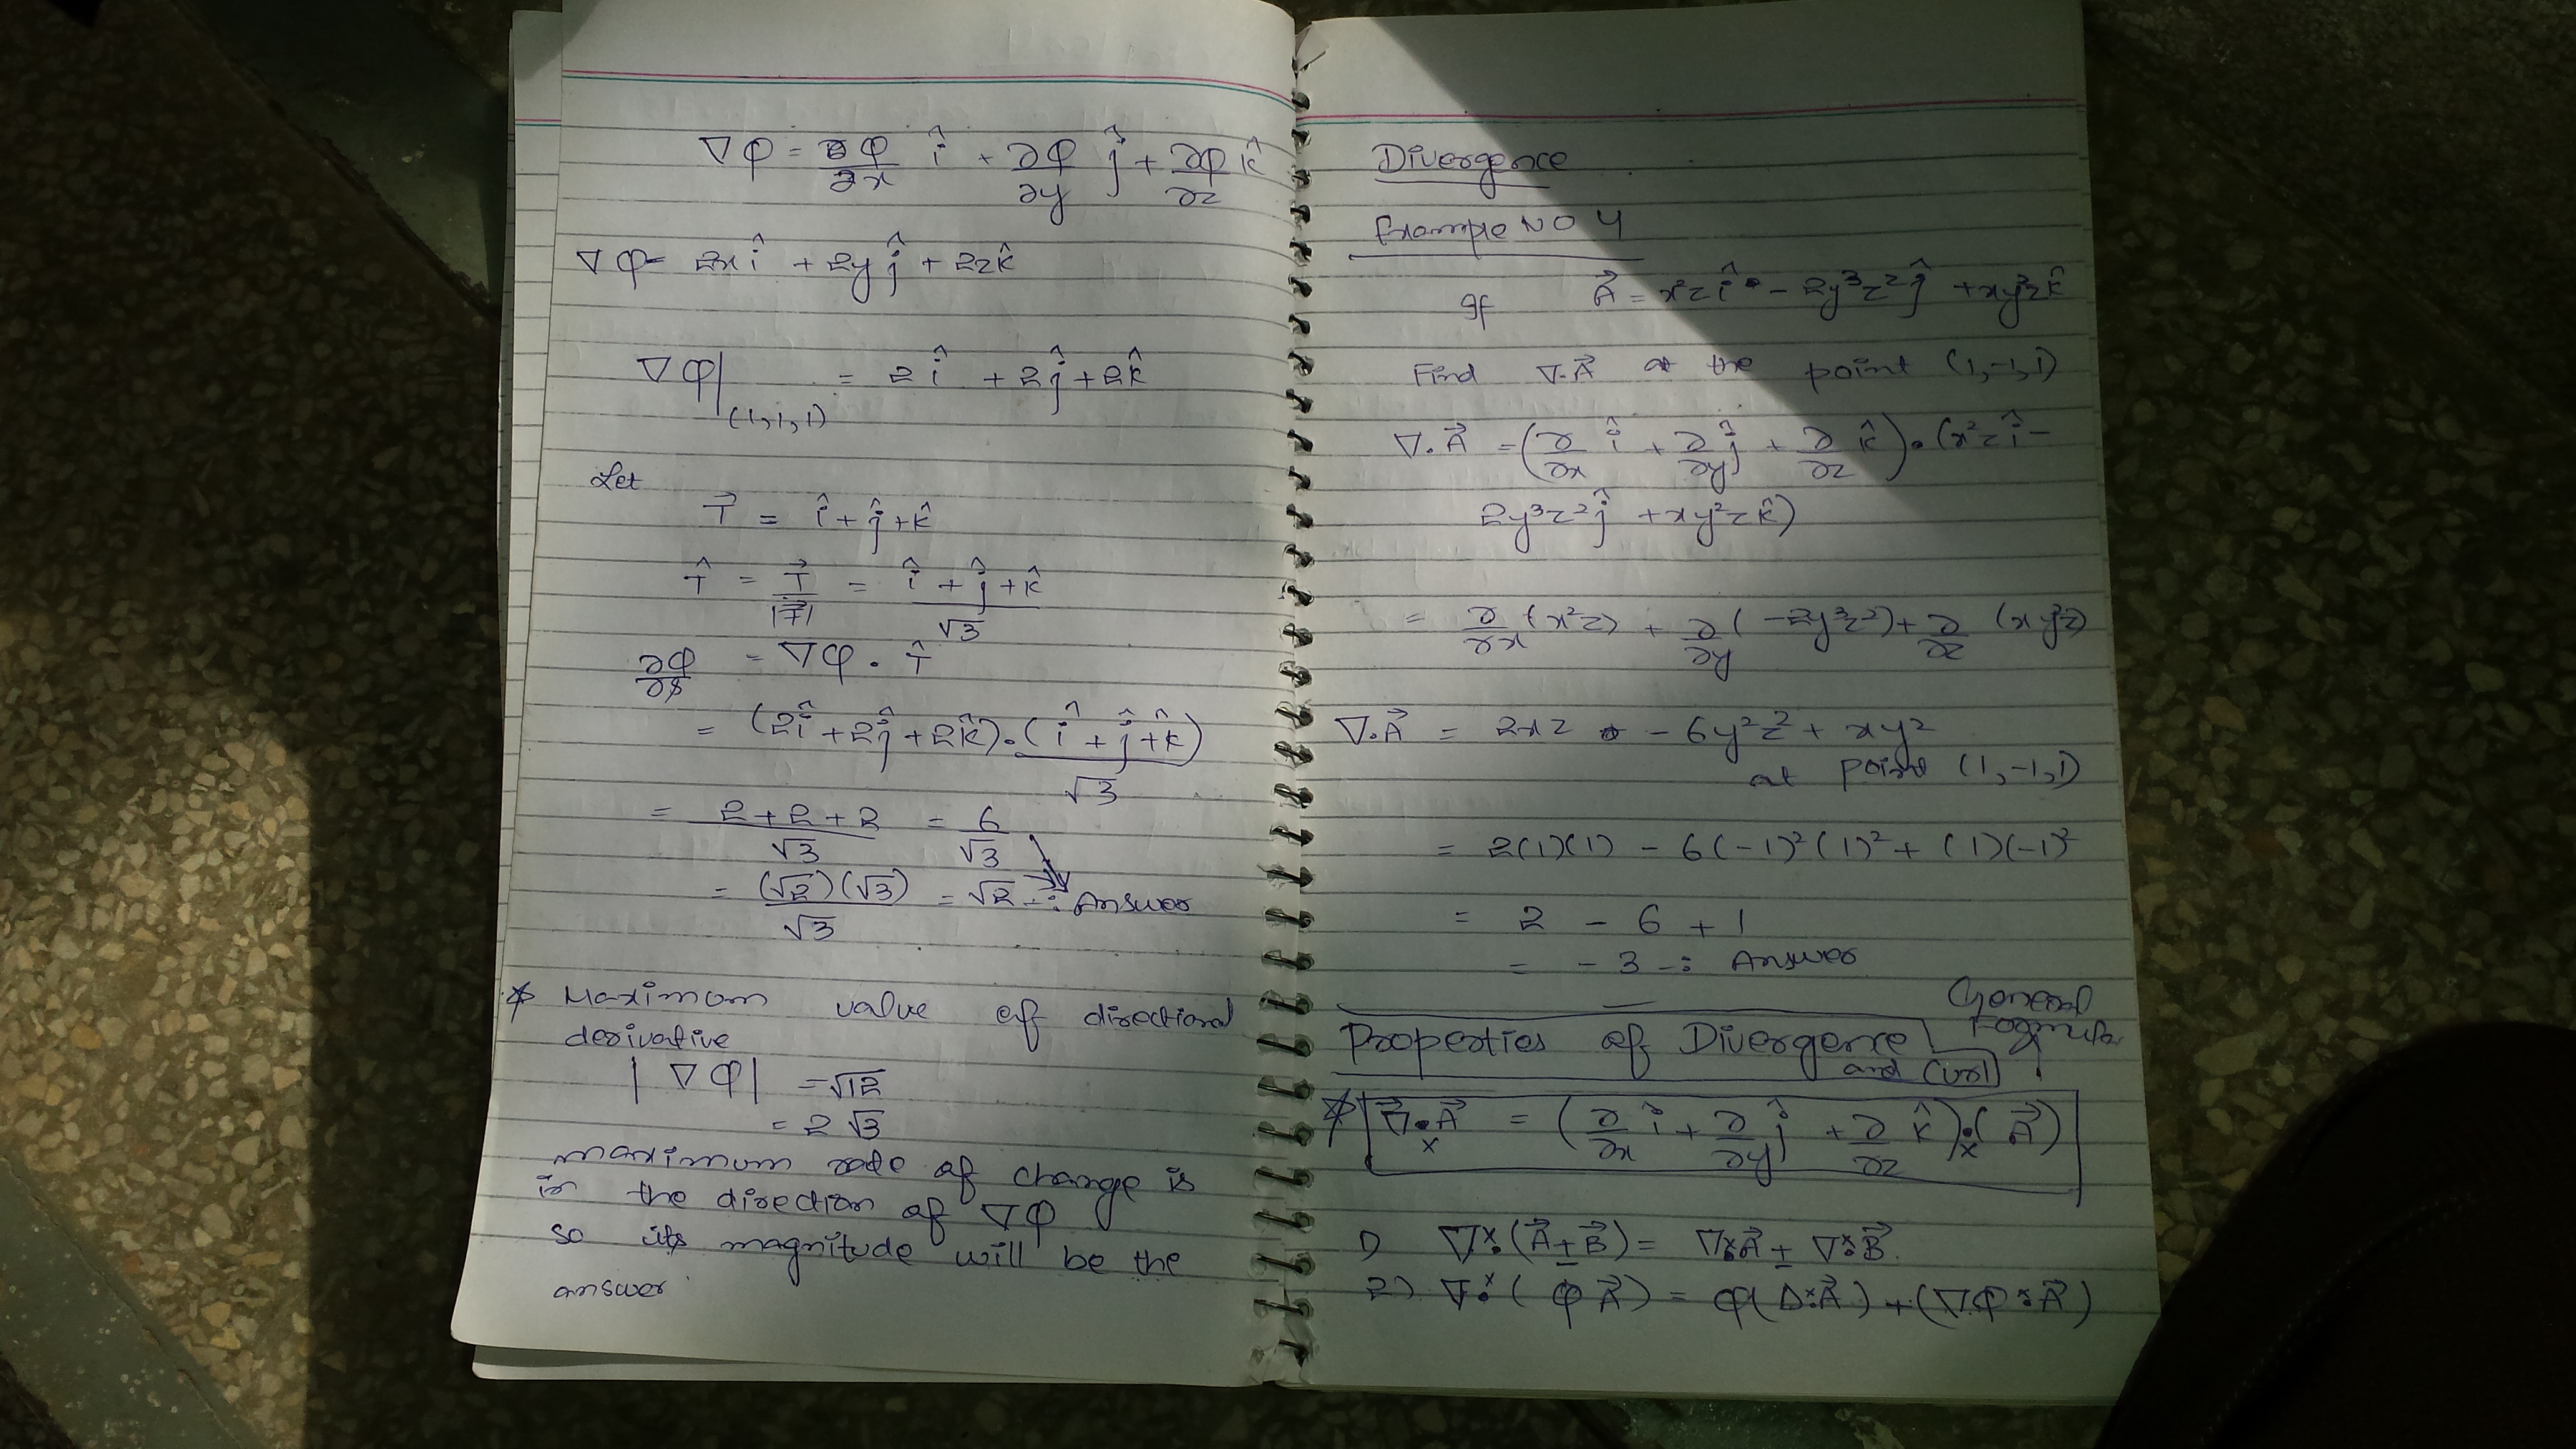 ∇φ = ∂φ/∂x î + ∂φ/∂y ĵ + ∂φ/∂z k̂
∇φ = 2x î + 2y ĵ + 2z k̂
∇φ|(1,1,1) = 2 î + 2 ĵ + 2 k̂
Let
T⃗ = î + ĵ + k̂
T̂ = T⃗/|T⃗| = (î + ĵ + k̂)/√3
∂φ/∂s = ∇φ . T̂
= (2î + 2ĵ + 2k̂) . (î + ĵ + k̂)/√3
= (2+2+2)/√3 = 6/√3
= (√2)(√3)/√3 = √2 -: Answer
* Maximum value of directional
derivative
|∇φ| = √12
= 2√3
maximum rate of change is
in the direction of ∇φ
so its magnitude will be the
answer.
Divergence
Example NO 4
If A⃗ = x²z î - 2y³z² ĵ + xy²z k̂
Find ∇.A⃗ at the point (1,-1,1)
∇.A⃗ = (∂/∂x î + ∂/∂y ĵ + ∂/∂z k̂) . (x²z î -
2y³z² ĵ + xy²z k̂)
= ∂/∂x (x²z) + ∂/∂y (-2y³z²) + ∂/∂z (xy²z)
∇.A⃗ = 2xz - 6y²z² + xy²
at point (1,-1,1)
= 2(1)(1) - 6(-1)²(1)² + (1)(-1)²
= 2 - 6 + 1
= -3 -: Answer
General
Formula
Properties of Divergence
and Curl
* ∇⃗ .× A⃗ = (∂/∂x î + ∂/∂y ĵ + ∂/∂z k̂) .× (A⃗)
1) ∇ ×. (A⃗ ± B⃗) = ∇ ×. A⃗ ± ∇ ×. B⃗.
2) ∇ ×. (φ A⃗) = φ(Δ ×. A⃗) + (∇φ ×. A⃗)